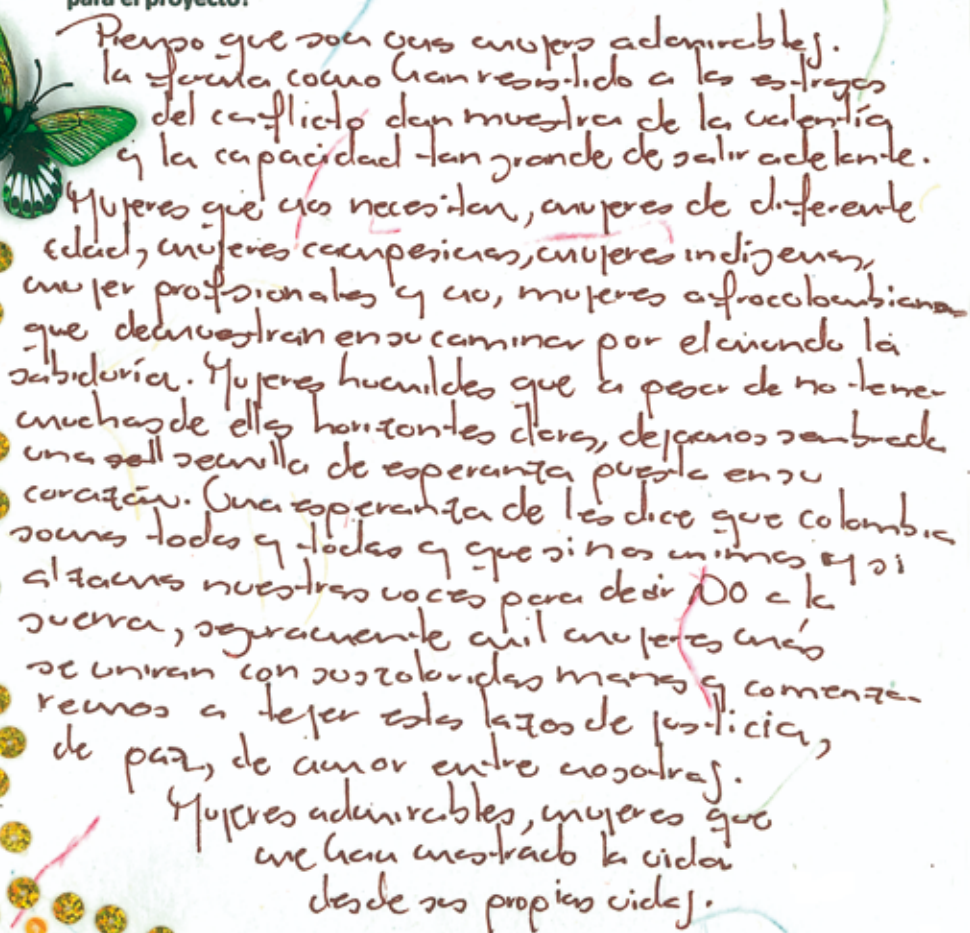 para el proyecto?
Pienso que son unas mujers admirables.
la forma como han resistido a los estragos
del conflicto dan muestra de la valentía
y la capacidad tan grande de salir adelante.
Mujeres que nos necesitan, mujeres de diferente
edad, mujeres campesinas, mujeres indigenas,
mujer profsionales y no, mujeres afrocolombianas
que demuestran en su caminar por el mundo la
sabiduria. Mujeres humildes que a pesar de no tener
muchas de ellas horizontes claros, dejamos sembrada
una sell semilla de esperanza puesta en su
corazón. Una esperanza de les dice que colombia
somos todos y todas y que si nos unimos y si
alzamos nuestras voces para decir NO a la
guerra, seguramente mil mujeres más
se uniran con sus coloridas manos y comenza-
remos a tejer estos lazos de justicia,
de paz, de amor entre nosotras.
Mujeres admirables, mujeres que
me han mostrado la vida
desde sus propias vidas.